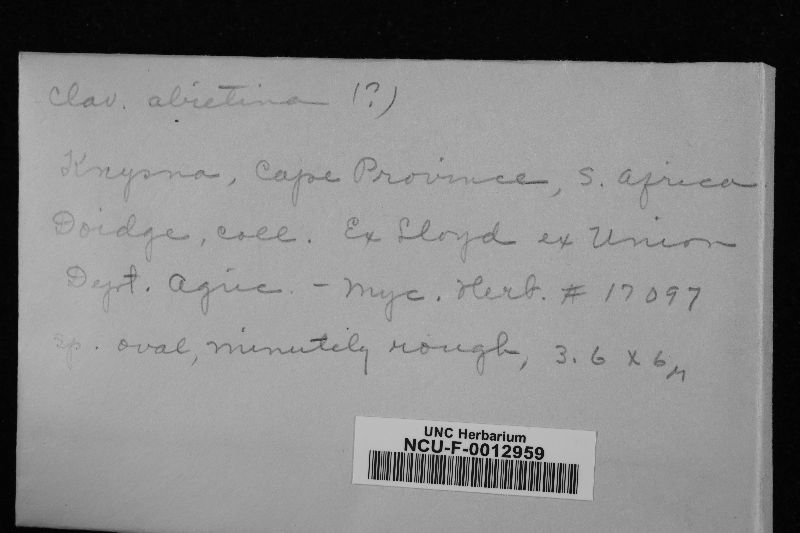 Clav. abietina (?)
Knysna, Cape Province, S. Africa
Doidge, coll. Ex Lloyd ex Union
Dept. Agric. - Myc. Herb. # 17097
sp. oval, minutely rough, 3.6 x 6µ
UNC Herbarium
NCU-F-0012959